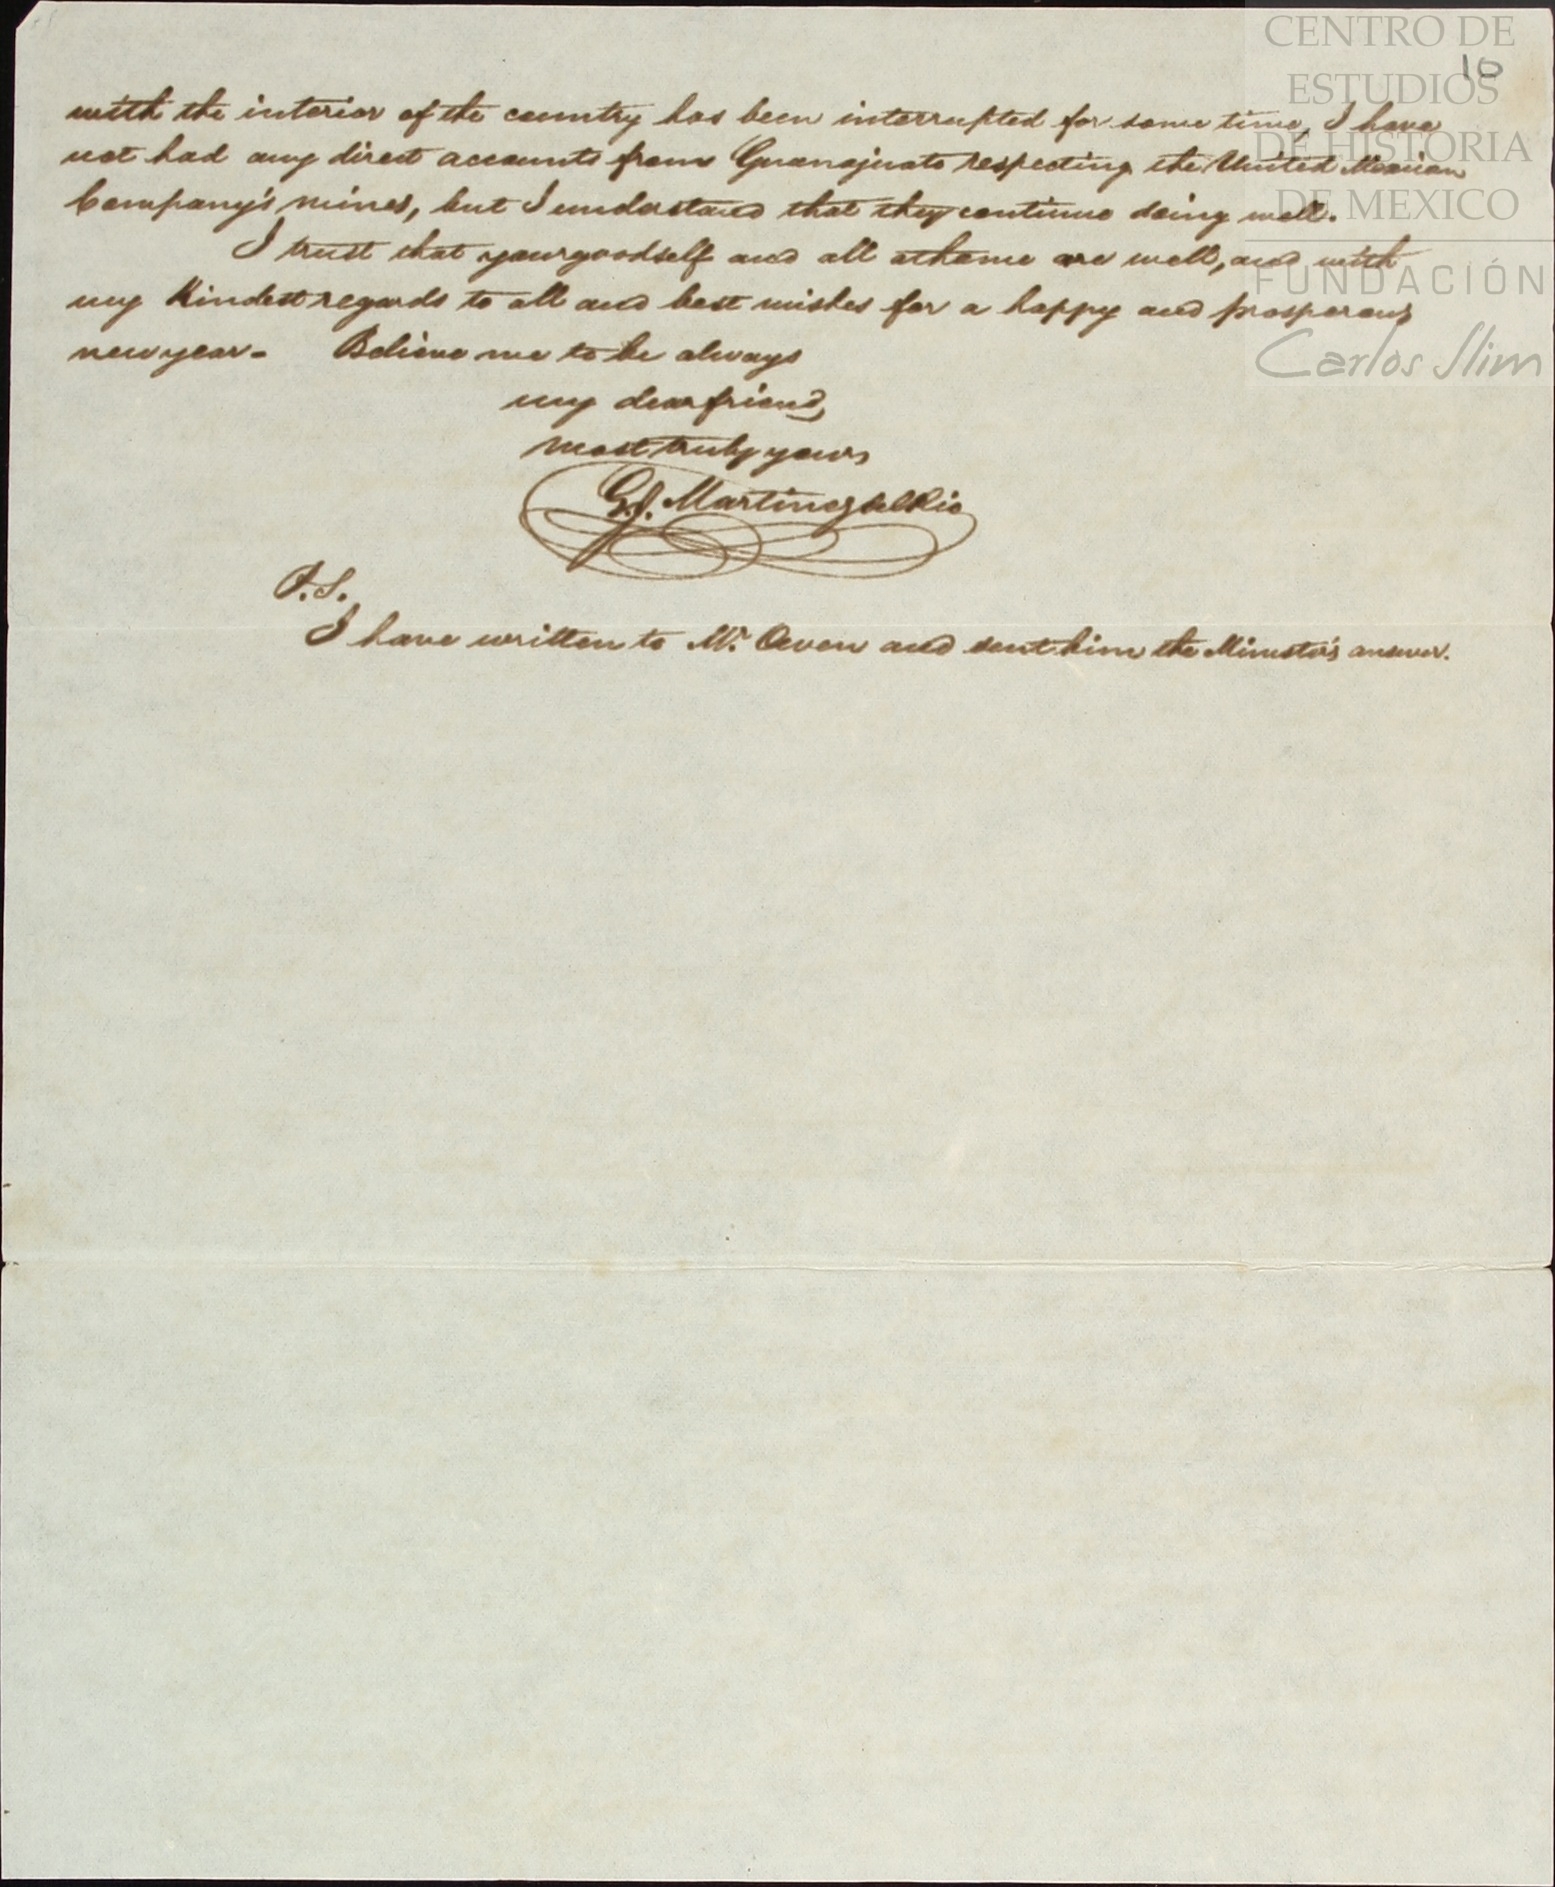 CENTRO DE
ESTUDIOS
DE HISTORIA
DE MEXICO
FUNDACIÓN
Carlos Slim
10
with the interior of the country has been interrupted for some time, I have
not had any direct accounts from Guanajuato respecting the United Mexican
Company's mines, but I understand that they continue doing well.
I trust that yourgoodself and all at home are well, and with
my Kindest regards to all and best wishes for a happy and prosperous
new year. Believe me to be always
my dear friend,
most truly yours
G. J. Martinez del Rio
P.S.
I have written to Mr. Owen and sent him the Minister's answer.